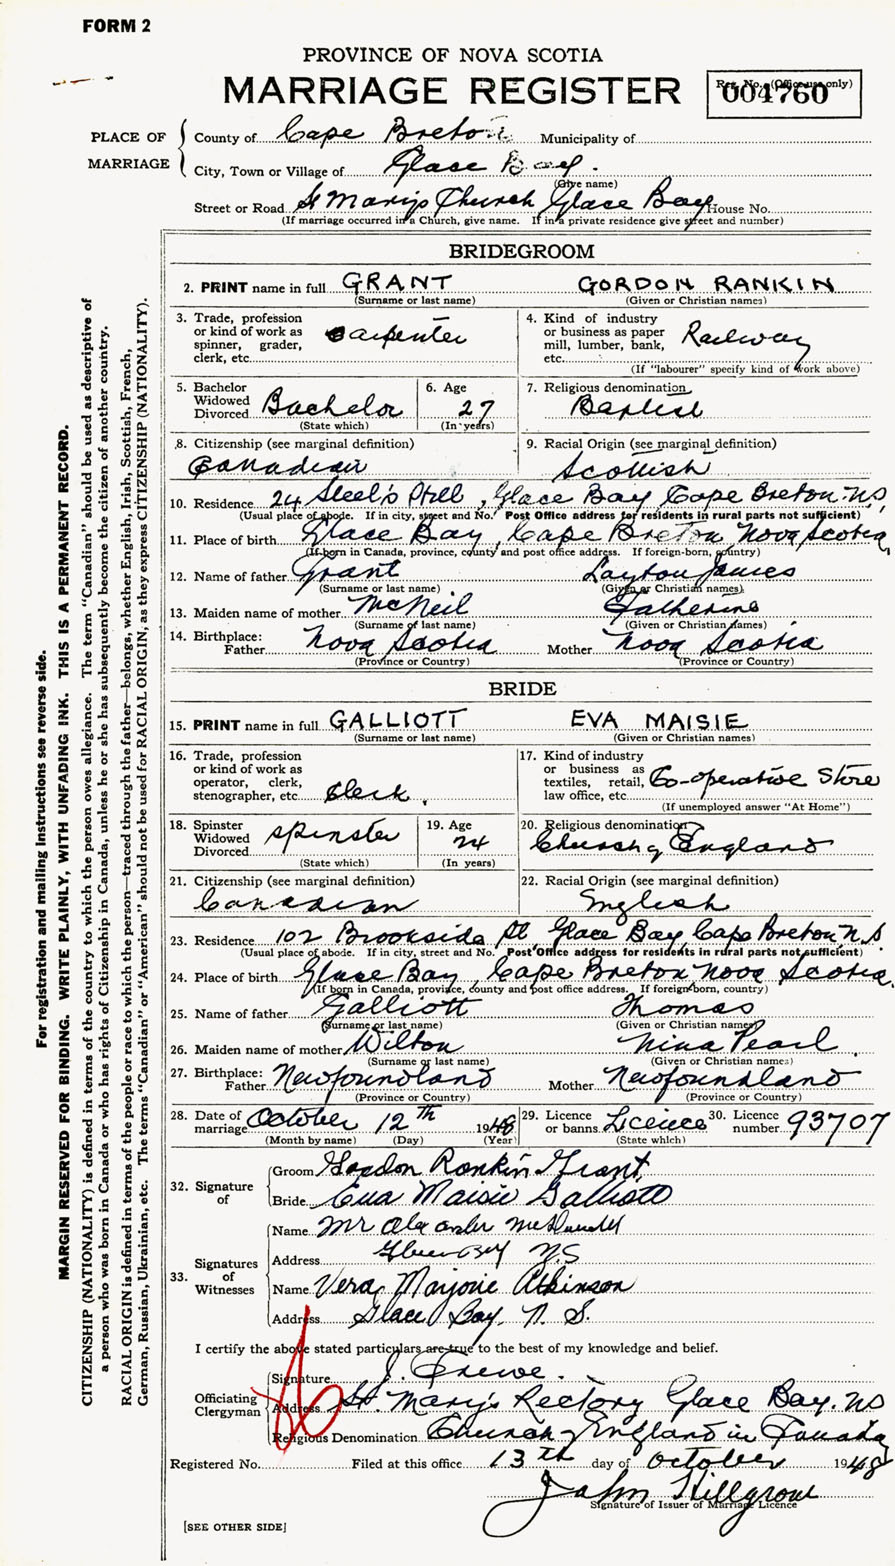 FORM 2
PROVINCE OF NOVA SCOTIA
MARRIAGE REGISTER
Reg. No. (Office use only)
004760
PLACE OF MARRIAGE
County of Cape Breton Municipality of
City, Town or Village of Glace Bay.
(Give name)
Street or Road St Mary's Church Glace Bay House No.
(If marriage occurred in a Church, give name. If in a private residence give street and number)
BRIDEGROOM
2. PRINT name in full GRANT GORDON RANKIN
(Surname or last name) (Given or Christian names)
3. Trade, profession or kind of work as spinner, grader, clerk, etc. Carpenter
4. Kind of industry or business as paper mill, lumber, bank, etc. Railway
(If "labourer" specify kind of work above)
5. Bachelor Widowed Divorced Bachelor
(State which)
6. Age 27
(In years)
7. Religious denomination
Baptist
8. Citizenship (see marginal definition)
Canadian
9. Racial Origin (see marginal definition)
Scottish
10. Residence 24 Steel's Hill, Glace Bay Cape Breton N.S,
(Usual place of abode. If in city, street and No. Post Office address for residents in rural parts not sufficient)
11. Place of birth Glace Bay, Cape Breton Nova Scotia,
(If born in Canada, province, county and post office address. If foreign-born, country)
12. Name of father Grant Layton James
(Surname or last name) (Given or Christian names)
13. Maiden name of mother McNeil Catherine
(Surname of last name) (Given or Christian names)
14. Birthplace:
Father Nova Scotia Mother Nova Scotia
(Province or Country) (Province or Country)
BRIDE
15. PRINT name in full GALLIOTT EVA MAISIE
(Surname or last name) (Given or Christian names)
16. Trade, profession or kind of work as operator, clerk, stenographer, etc. Clerk.
17. Kind of industry or business as textiles, retail, law office, etc. Co-operative Store
(If unemployed answer "At Home")
18. Spinster Widowed Divorced Spinster
(State which)
19. Age 24
(In years)
20. Religious denomination
Church of England
21. Citizenship (see marginal definition)
Canadian
22. Racial Origin (see marginal definition)
English
23. Residence 102 Brookside St, Glace Bay Cape Breton N.S.
(Usual place of abode. If in city, street and No. Post Office address for residents in rural parts not sufficient)
24. Place of birth Glace Bay, Cape Breton Nova Scotia.
(If born in Canada, province, county and post office address. If foreign-born, country)
25. Name of father Galliott Thomas
(Surname or last name) (Given or Christian names)
26. Maiden name of mother Wilton Nina Pearl.
(Surname or last name) (Given or Christian names)
27. Birthplace:
Father Newfoundland Mother Newfoundland
(Province or Country) (Province or Country)
28. Date of marriage October 12th 1948
(Month by name) (Day) (Year)
29. Licence or banns. Licence
(State which)
30. Licence number 93707
32. Signature of
Groom Gordon Rankin Grant,
Bride Eva Maisie Galliott
33. Signatures of Witnesses
Name Mr Alexander
Address Glace Bay N.S
Name Vera Marjorie Atkinson
Address Glace Bay. N. S.
I certify the above stated particulars are true to the best of my knowledge and belief.
Officiating Clergyman
Signature J. Crewe.
Address St. Mary's Rectory Glace Bay. NS
Religious Denomination Church of England in Canada
Registered No. Filed at this office 13th day of October 1948
John Hillgrove
Signature of Issuer of Marriage Licence
[SEE OTHER SIDE]
For registration and mailing instructions see reverse side.
MARGIN RESERVED FOR BINDING. WRITE PLAINLY, WITH UNFADING INK. THIS IS A PERMANENT RECORD.
CITIZENSHIP (NATIONALITY) is defined in terms of the country to which the person owes allegiance. The term "Canadian" should be used as descriptive of
a person who was born in Canada or who has rights of Citizenship in Canada, unless he or she has subsequently become the citizen of another country.
RACIAL ORIGIN is defined in terms of the people or race to which the person—traced through the father—belongs, whether English, Irish, Scottish, French,
German, Russian, Ukrainian, etc. The terms "Canadian" or "American" should not be used for RACIAL ORIGIN, as they express CITIZENSHIP (NATIONALITY).